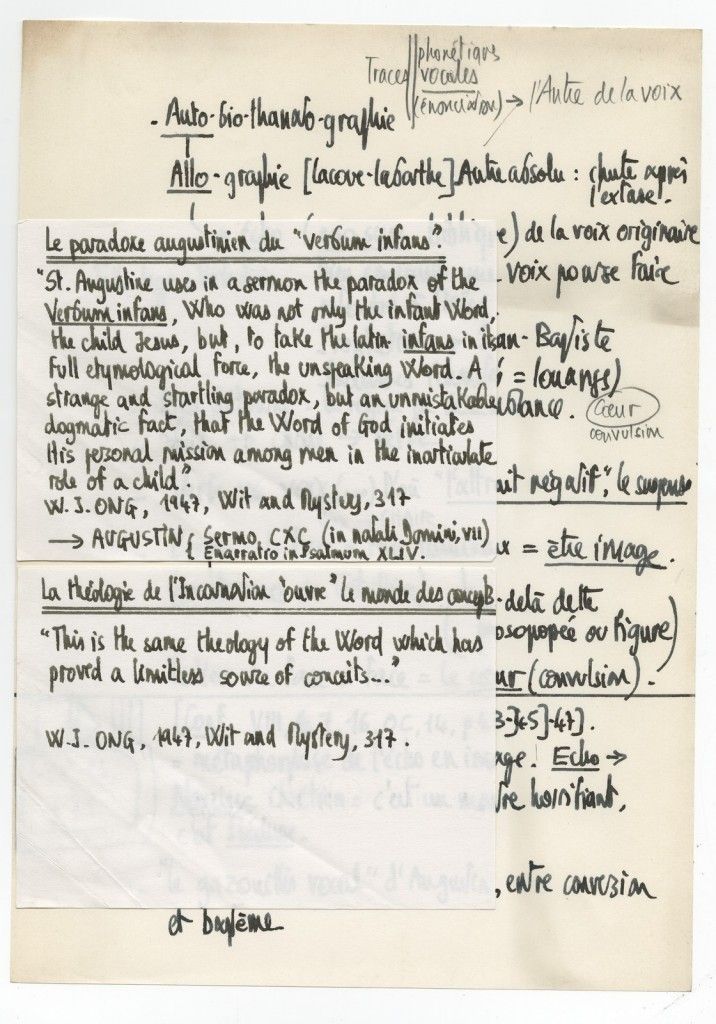 Traces phonétiques
vocales
(énonciation) → l'Autre de la voix
- Auto-bio-thanato-graphie
Allo-graphie [Lacoue-Labarthe] Autre absolu : chute après
l'extase.
) de la voix originaire
voix pousse faire
Le paradoxe augustinien du "verbum infans"
"St. Augustine uses in a sermon the paradox of the
Verbum infans, Who was not only the infant Word,
the child Jesus, but, to take the latin infans in its
full etymological force, the unspeaking Word. A
strange and startling paradox, but an unmistakable
dogmatic fact, that the Word of God initiates
His personal mission among men in the inarticulate
role of a child".
W. J. ONG, 1947, Wit and Mystery, 317
→ AUGUSTIN { Sermo, CXC (in natali Domini, VII)
Enarratio in Psalmum XLIV.
an-Baptiste
= louange)
Cœur
convulsion
négatif", le suspens
= être image.
La théologie de l'Incarnation "ouvre" le monde des concepts
"This is the same theology of the Word which has
proved a limitless source of conceits..."
W. J. ONG, 1947, Wit and Mystery, 317.
-delà dette
osopopée ou figure)
(convulsion).
3-]45]-47].
Echo →
horrifiant,
"le gazouillis vocal" d'Augustin, entre conversion
et baptême